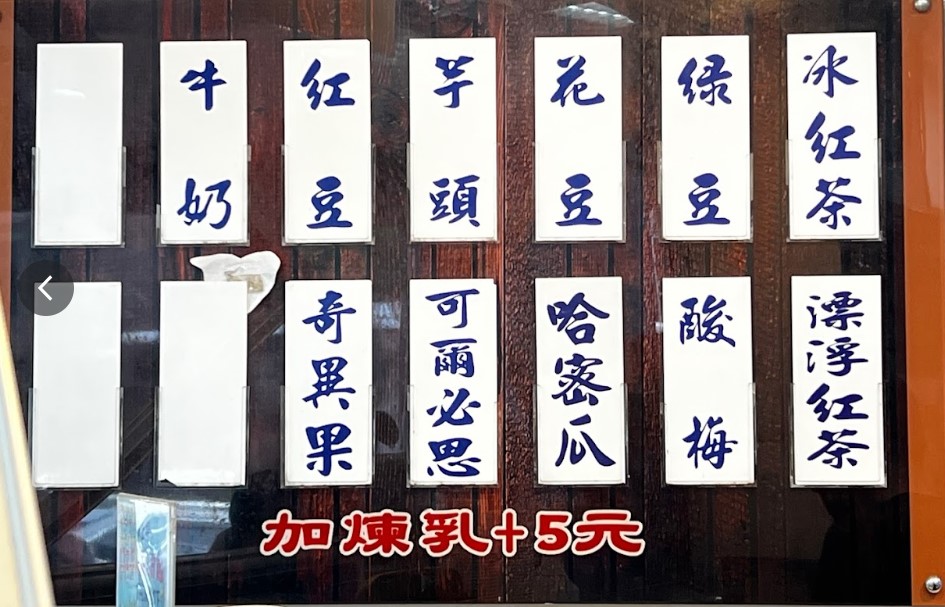 冰紅茶
绿豆
花豆
芋頭
紅豆
牛奶
漂浮紅茶
酸梅
哈密瓜
可爾必思
奇異果
加煉乳+5元